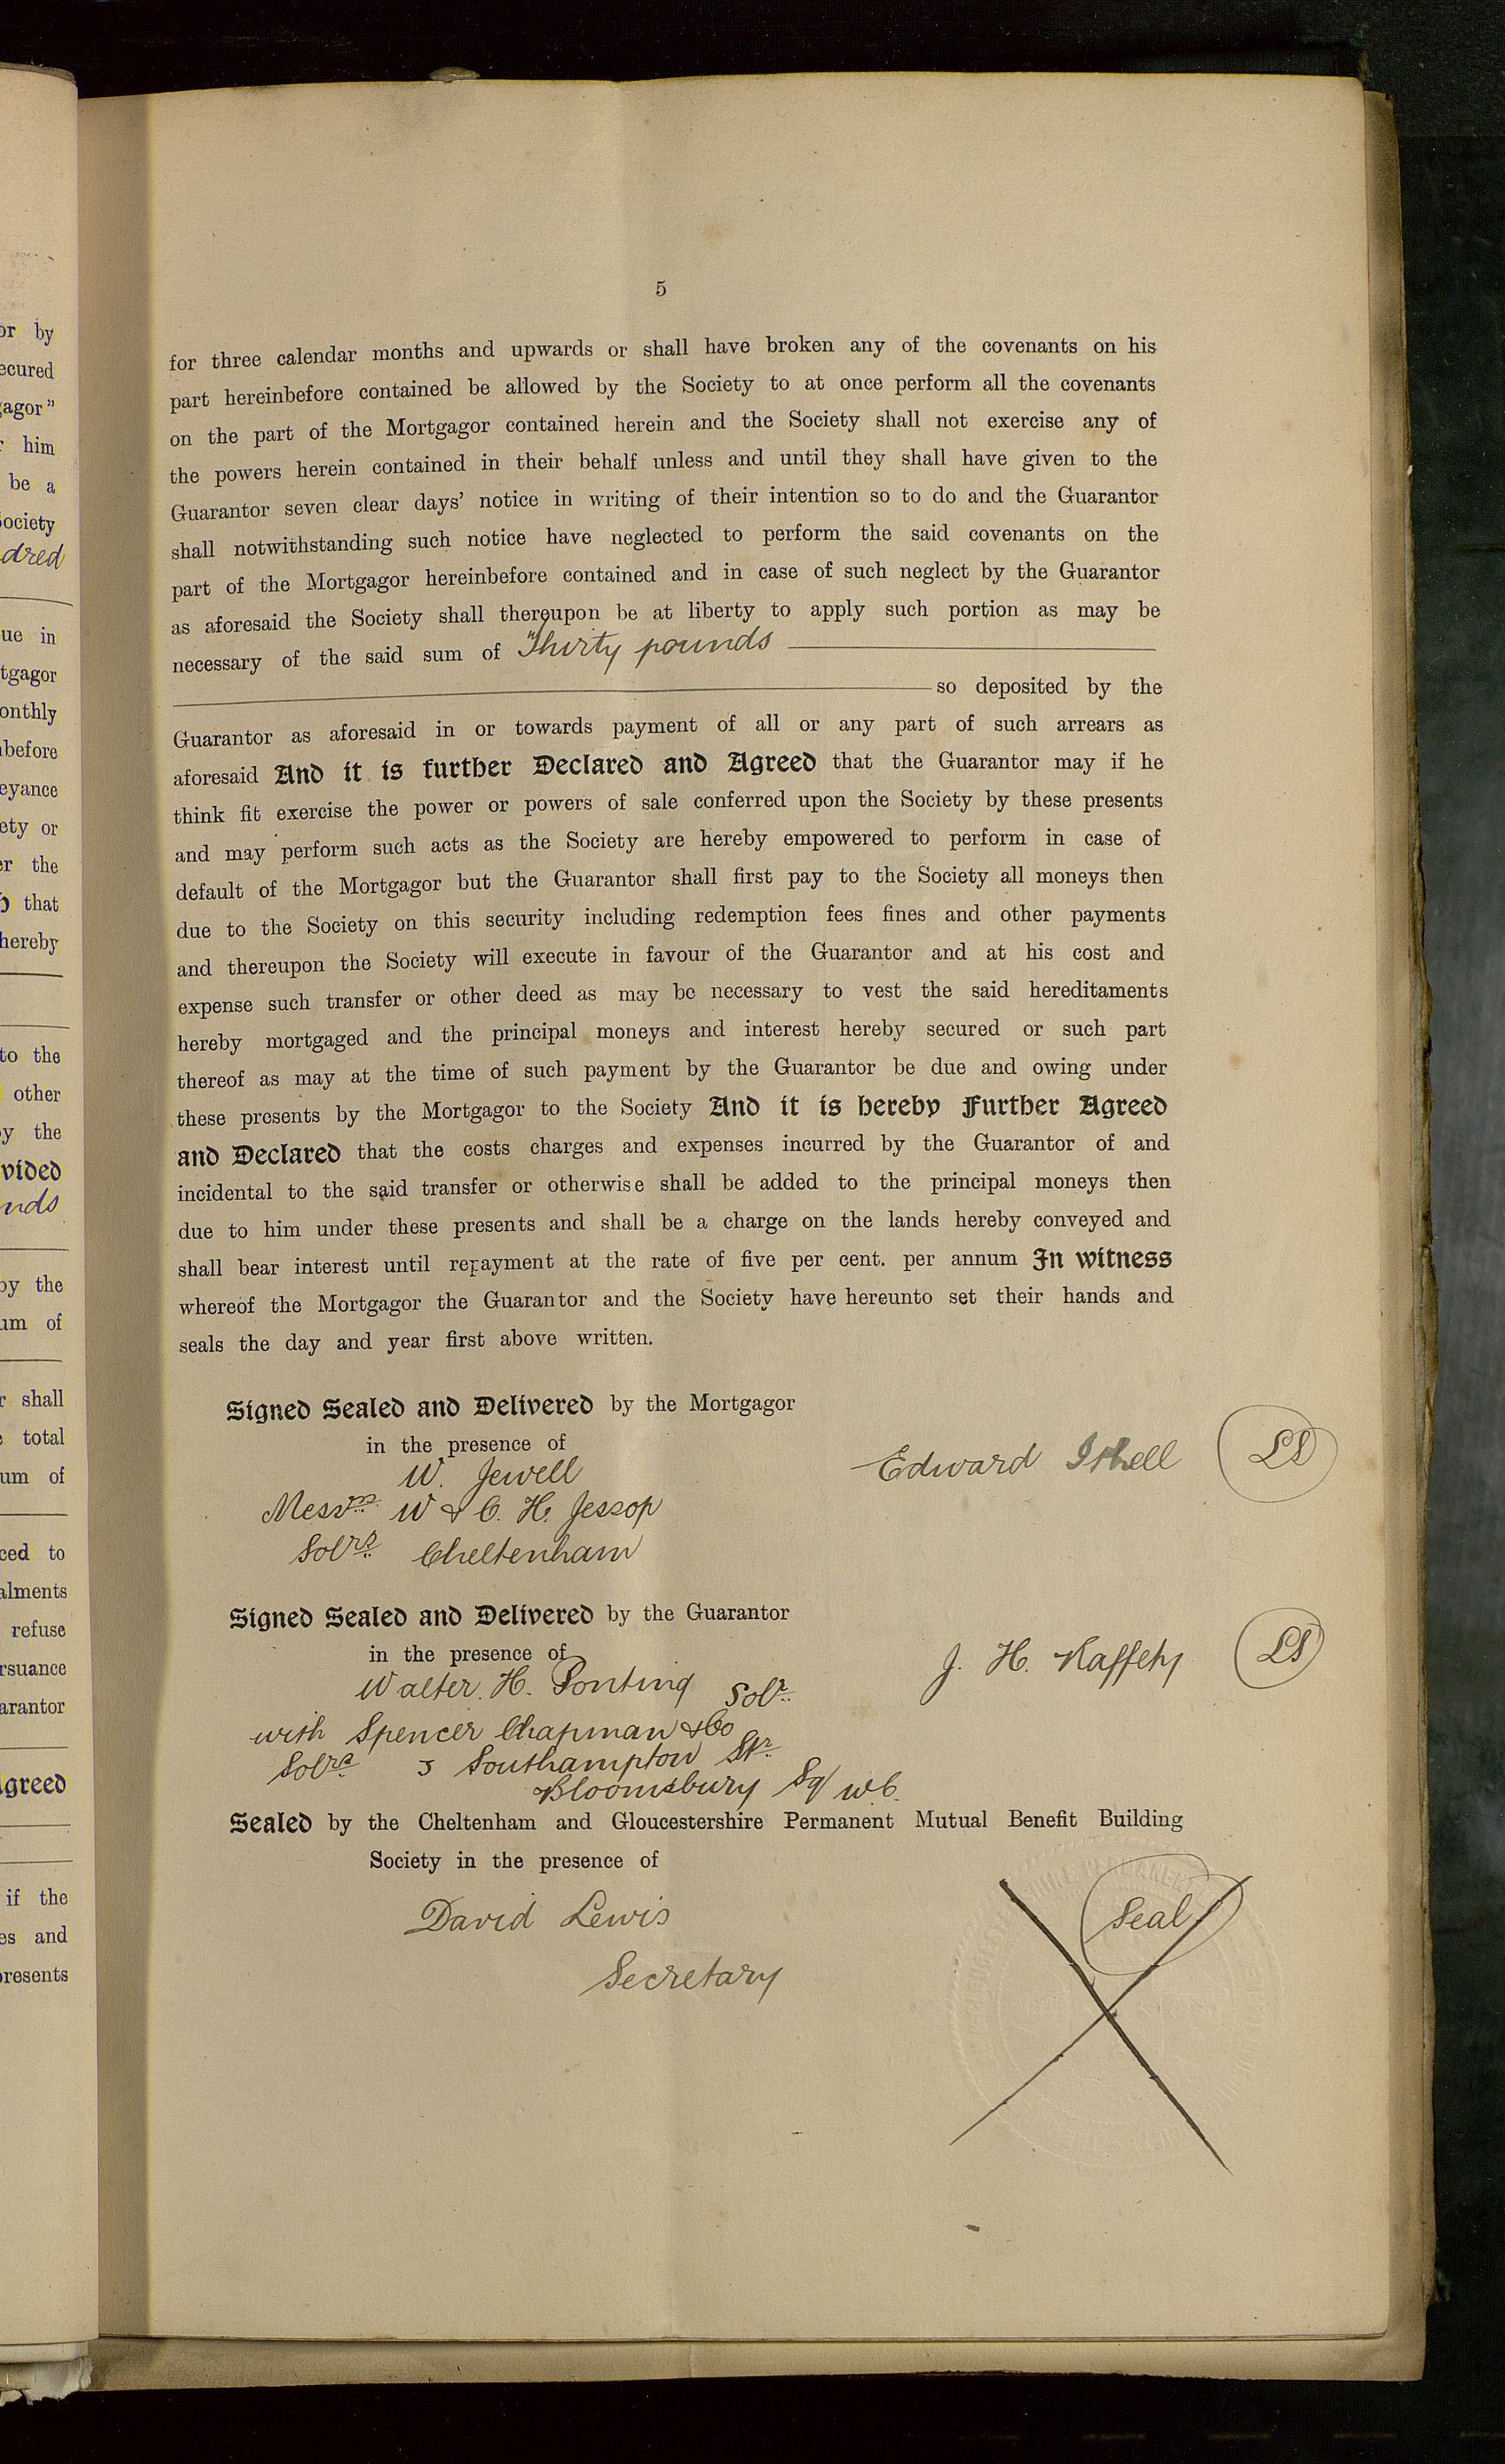 or by
ecured
gagor"
r him
be a
Society
dred
ue in
tgagor
onthly
nbefore
eyance
ety or
er the
that
hereby
to the
other
by the
vided
nds
by the
um of
r shall
e total
um of
ced to
alments
refuse
rsuance
arantor
Agreed
if the
es and
presents
5
for three calendar months and upwards or shall have broken any of the covenants on his
part hereinbefore contained be allowed by the Society to at once perform all the covenants
on the part of the Mortgagor contained herein and the Society shall not exercise any of
the powers herein contained in their behalf unless and until they shall have given to the
Guarantor seven clear days' notice in writing of their intention so to do and the Guarantor
shall notwithstanding such notice have neglected to perform the said covenants on the
part of the Mortgagor hereinbefore contained and in case of such neglect by the Guarantor
as aforesaid the Society shall thereupon be at liberty to apply such portion as may be
necessary of the said sum of Thirty pounds
so deposited by the
Guarantor as aforesaid in or towards payment of all or any part of such arrears as
aforesaid And it is further Declared and Agreed that the Guarantor may if he
think fit exercise the power or powers of sale conferred upon the Society by these presents
and may perform such acts as the Society are hereby empowered to perform in case of
default of the Mortgagor but the Guarantor shall first pay to the Society all moneys then
due to the Society on this security including redemption fees fines and other payments
and thereupon the Society will execute in favour of the Guarantor and at his cost and
expense such transfer or other deed as may be necessary to vest the said hereditaments
hereby mortgaged and the principal moneys and interest hereby secured or such part
thereof as may at the time of such payment by the Guarantor be due and owing under
these presents by the Mortgagor to the Society And it is hereby Further Agreed
and Declared that the costs charges and expenses incurred by the Guarantor of and
incidental to the said transfer or otherwise shall be added to the principal moneys then
due to him under these presents and shall be a charge on the lands hereby conveyed and
shall bear interest until repayment at the rate of five per cent. per annum In witness
whereof the Mortgagor the Guarantor and the Society have hereunto set their hands and
seals the day and year first above written.
Signed Sealed and Delivered by the Mortgagor
in the presence of
W. Jewell
Edward Ithell LS
Messrs W & C. H. Jessop
Solrs Cheltenham
Signed Sealed and Delivered by the Guarantor
in the presence of
J. H. Raffety LS
Walter. H. Ponting Solr
with Spencer Chapman & Co
Solrs 3 Southampton Str
Bloomsbury Sq W.C.
Sealed by the Cheltenham and Gloucestershire Permanent Mutual Benefit Building
Society in the presence of
David Lewis
Seal
Secretary